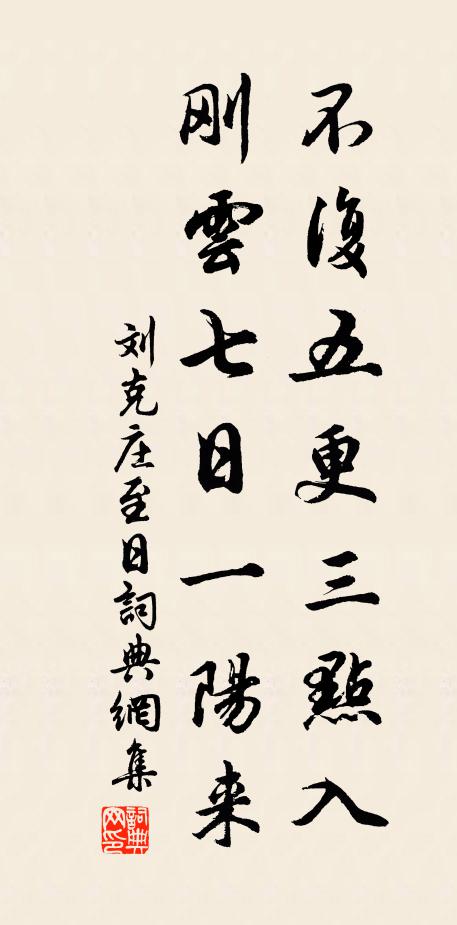 不復五更三點入
刚雲七日一陽来
刘克庄至日詞典網集
詞典网印